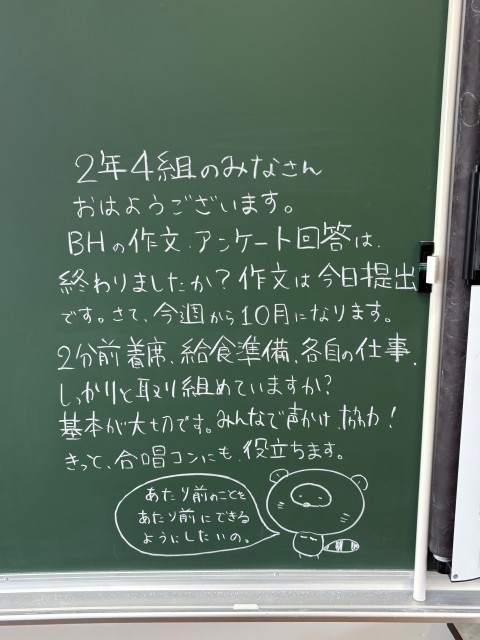 2年4組のみなさん
おはようございます。
BHの作文、アンケート回答は、
終わりましたか?作文は今日提出
です。さて、今週から10月になります。
2分前着席、給食準備、各自の仕事、
しっかりと取り組めていますか?
基本が大切です。みんなで声かけ、協力!
きっと、合唱コンにも、役立ちます。
あたり前のことを
あたり前にできる
ようにしたいの。